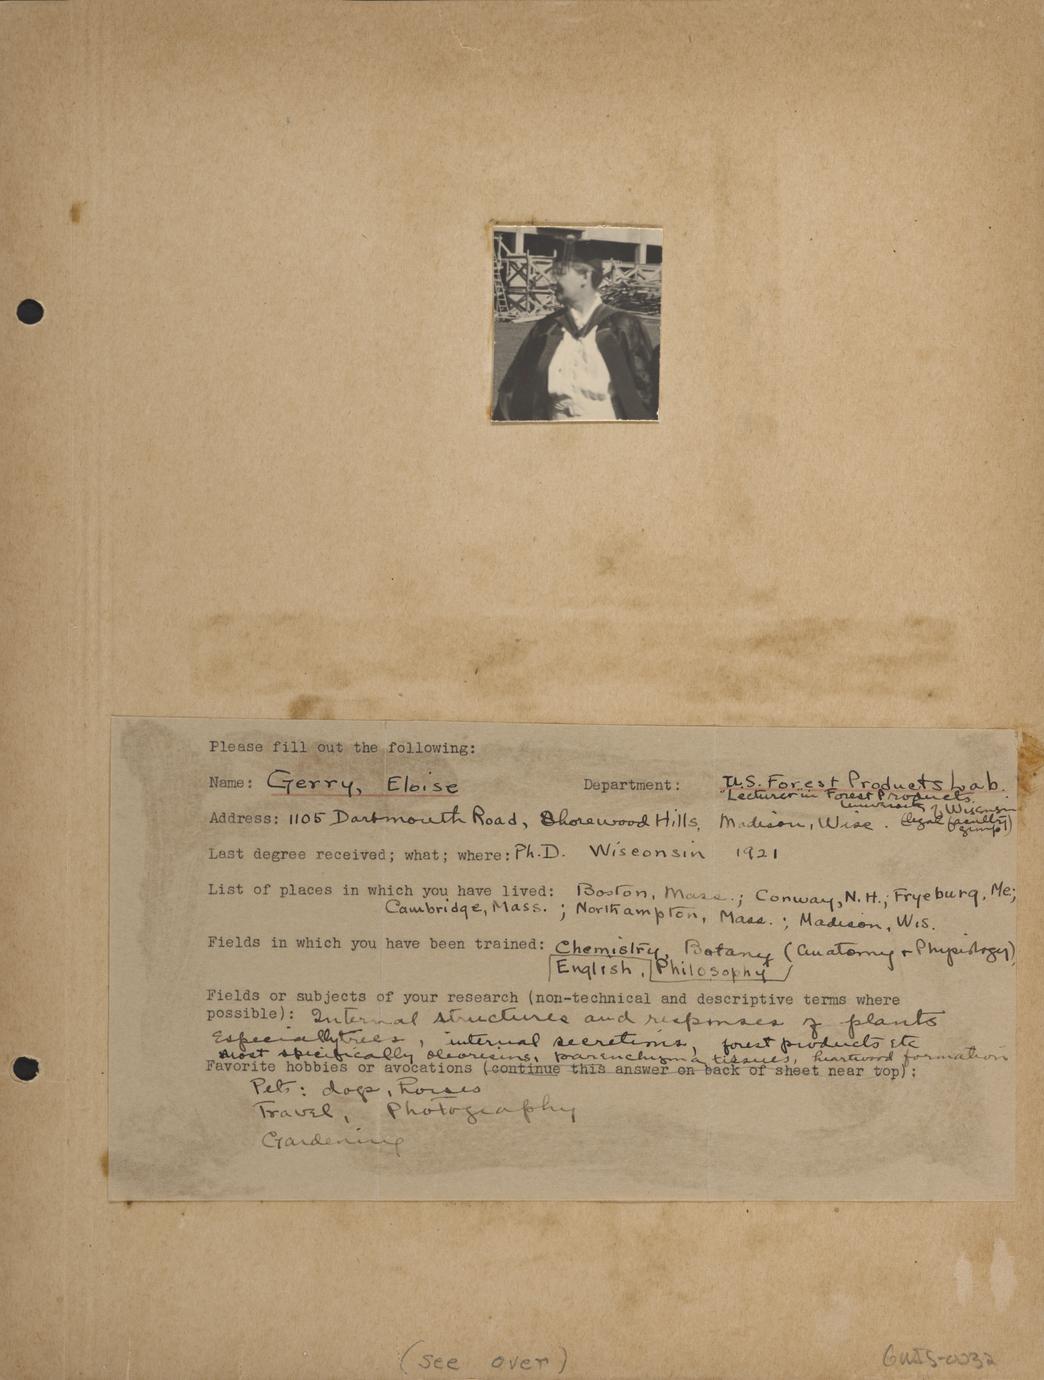 Please fill out the following:
Name: Gerry, Eloise Department: U.S. Forest Products Lab.
Lecturer in Forest Products
University of Wisconsin
Address: 1105 Dartmouth Road, Shorewood Hills, Madison, Wisc. (legal faculty
Last degree received; what; where: Ph.D. Wisconsin 1921
List of places in which you have lived: Boston, Mass.; Conway, N.H.; Fryeburg, Me;
Cambridge, Mass. ; Northampton, Mass. ; Madison, Wis.
Fields in which you have been trained: Chemistry, Botany (Anatomy + Physiology)
English, Philosophy
Fields or subjects of your research (non-technical and descriptive terms where
possible): Internal structures and responses of plants
Especially trees, internal secretions, forest products etc
most specifically oleoresins, parenchyma tissues, heartwood formation
Favorite hobbies or avocations (continue this answer on back of sheet near top):
Pets: dogs, horses
Travel, Photography
Gardening
(see over)